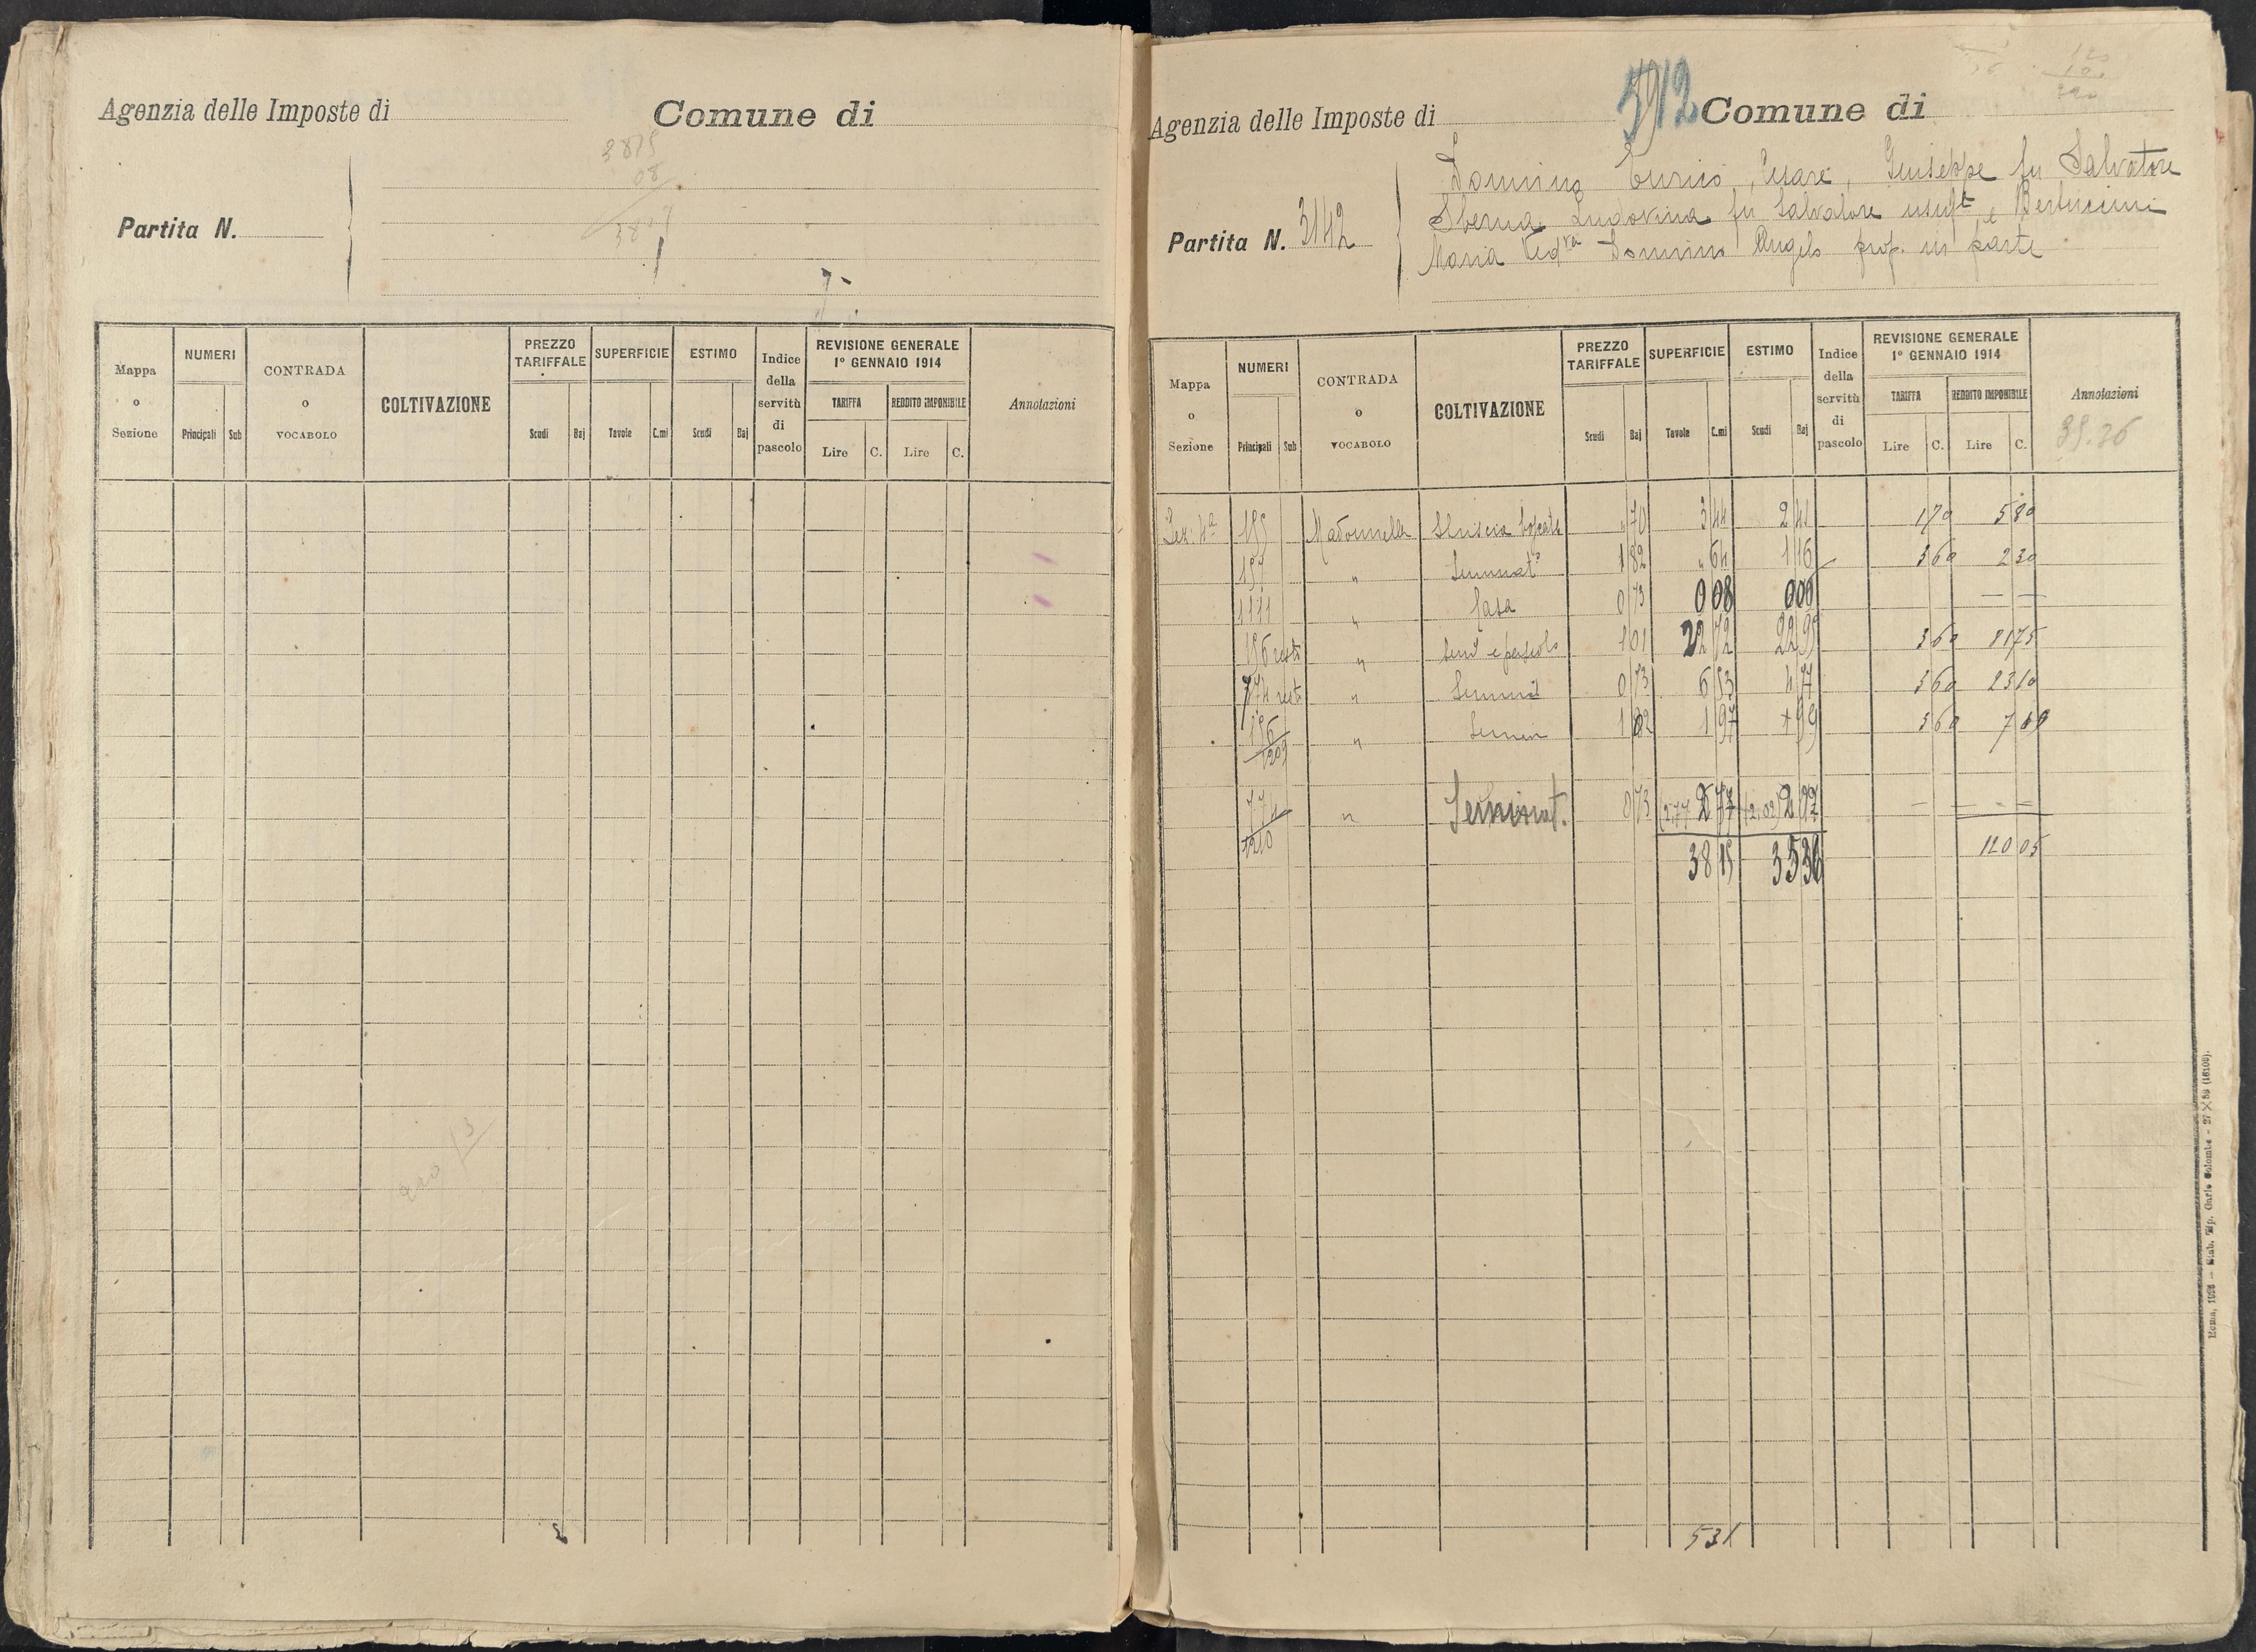 Agenzia delle Imposte di Comune di
3815
08
Partita N.
Mappa o Sezione
NUMERI
Principali Sub
CONTRADA o VOCABOLO
COLTIVAZIONE
PREZZO TARIFFALE
Scudi Baj
SUPERFICIE
Tavole C.mi
ESTIMO
Scudi Baj
Indice della servitù di pascolo
REVISIONE GENERALE 1º GENNAIO 1914
TARIFFA
Lire C.
REDDITO IMPONIBILE
Lire C.
Annotazioni
Agenzia delle Imposte di 592 Comune di
Partita N. 3142
Domino Enrico, Cesare, Giuseppe fu Salvatore
Ludovina fu Salvatore usuft e
Maria Vedva Domino Angelo prop. in parte
Mappa o Sezione
NUMERI
Principali Sub
CONTRADA o VOCABOLO
COLTIVAZIONE
PREZZO TARIFFALE
Scudi Baj
SUPERFICIE
Tavole C.mi
ESTIMO
Scudi Baj
Indice della servitù di pascolo
REVISIONE GENERALE 1º GENNAIO 1914
TARIFFA
Lire C.
REDDITO IMPONIBILE
Lire C.
Annotazioni
35.36
Sez. 4a 195 Madonnella " 70 3 44 2 41 1 70 5 80
197 " Seminato 1 82 " 64 1 16 3 60 2 30
1111 " Casa 0 73 0 08 0 00 — —
196 resto " Semo e pascolo 1 01 22 72 22 95 3 60 81 75
774 resto " 0 73 6 53 4 77 3 60 23 10
196/1209 " Semin 1 02 1 97 1 99 3 60 7 09
774/1210 " Seminat. 0 73 (2,77 2 77 (2,02) 2 02 — — — —
38 15 35 36 120 05
531
Roma, 1926 — Stab. Tip. Carlo Colombo - 27 X 38 (16100).